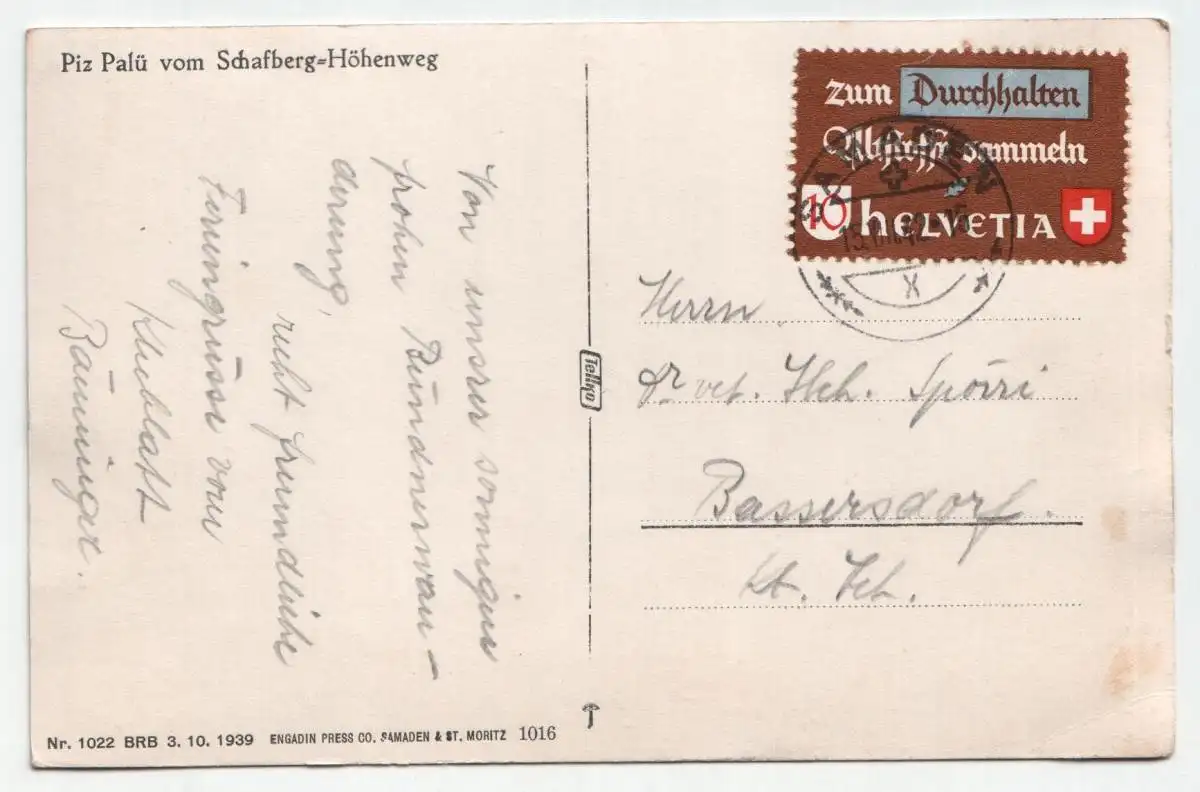 Piz Palü vom Schafberg=Höhenweg
Von unsrer sonnigen
frohen Bündnerwan-
derung,
recht freundliche
Feriengrüsse vom
Kleeblatt
Bänninger.
Tellko
Nr. 1022 BRB 3. 10. 1939 ENGADIN PRESS CO. SAMADEN & ST. MORITZ 1016
zum Durchhalten
Altstoffe sammeln
10 HELVETIA
SAMADEN
X
Herrn
Dr vet. Hch. Spörri
Bassersdorf.
Kt. Zch.